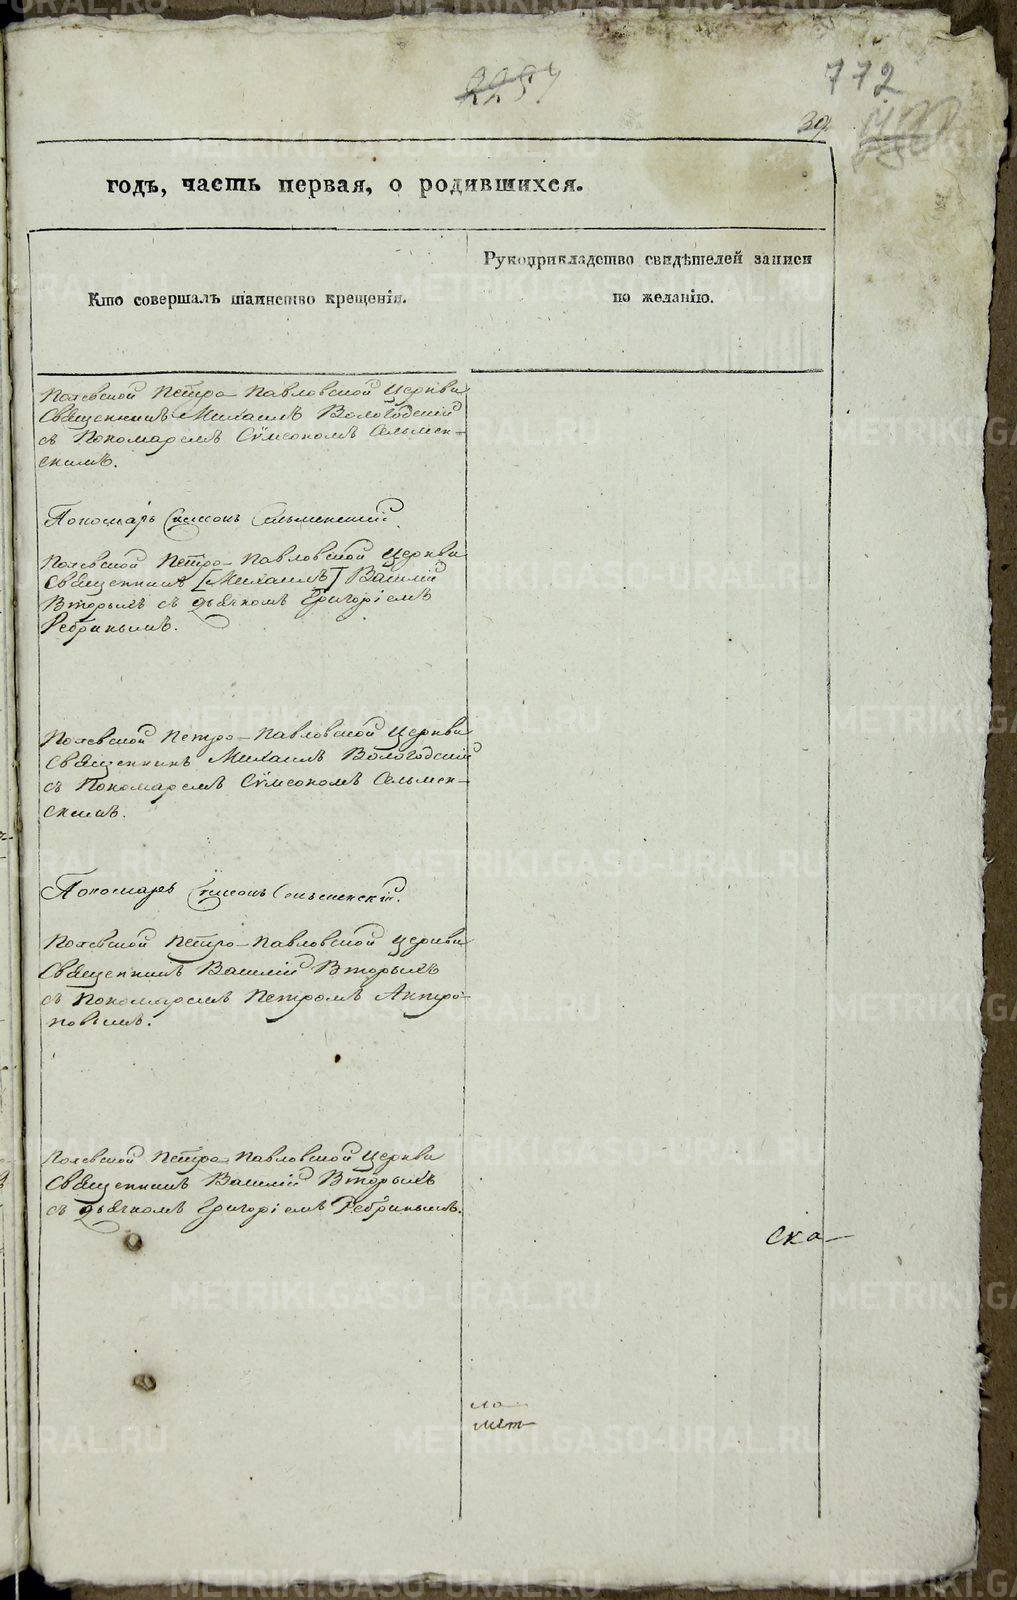 772
39
годъ, часть первая, о родившихся.
Кто совершалъ таинство крещенія.
Рукоприкладство свидѣтелей записи
по желанію.
Полевской Петро-Павловской Церкви
Священникъ Михаилъ Вологодскій
съ Пономаремъ Сѵмеономъ Сельмен-
скимъ.
Пономарь Сѵмеонъ Сельменскій.
Полевской Петро-Павловской Церкви
Священникъ [Михаилъ] Василій
Вторыхъ съ дьячкомъ Григоріемъ
Ребринымъ.
Полевской Петро-Павловской Церкви
Священникъ Михаилъ Вологодскій
съ Пономаремъ Сѵмеономъ Сельмен-
скимъ.
Пономарь Сѵмеонъ Сельменскій.
Полевской Петро-Павловской Церкви
Священникъ Василій Вторыхъ
съ Пономаремъ Петромъ Антро-
повымъ.
Полевской Петро-Павловской Церкви
Священникъ Василій Вторыхъ
съ дьячкомъ Григоріемъ Ребринымъ.
Ска-
METRIKI.GASO-URAL.RU